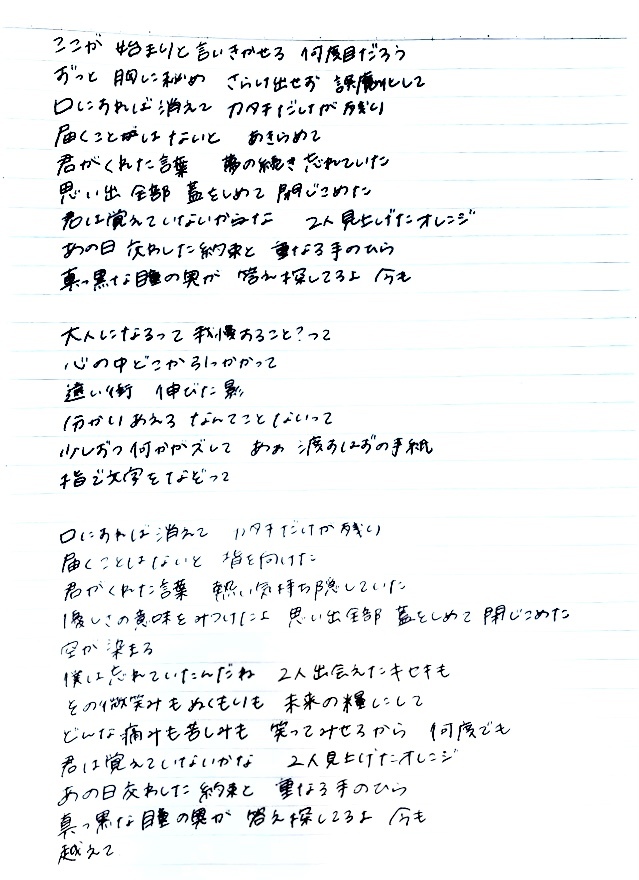 ここが 始まりと言いきかせる 何度目だろう
ずっと 胸に秘め さらけ出せず 誤魔化して
口にすれば消えて カタチだけが残り
届くことはないと あきらめて
君がくれた言葉 夢の続き忘れていた
思い出 全部 蓋をしめて 閉じこめた
君は覚えていないからな 2人見上げたオレンジ
あの日 交わした約束と 重なる手のひら
真っ黒な瞳の奥が 答え探してるよ 今も

大人になるって 我慢すること?って
心の中どこか引っかかって
遠い街 伸びた影
分かりあえる なんてことないって
少しずつ何かがズレして あぁ 渡すはずの手紙
指で文字をなぞって

口にすれば消えて カタチだけが残り
届くことはないと 指を向けた
君がくれた言葉 熱い気持ち隠していた
優しさの意味をみつけたよ 思い出全部 蓋をしめて 閉じこめた
空が染まる
僕は忘れていたんだね 2人出会えたキセキも
その微笑みもぬくもりも 未来の糧にして
どんな痛みも苦しみも 笑ってみせるから 何度でも
君は覚えていないかな 2人見上げたオレンジ
あの日交わした約束と 重なる手のひら
真っ黒な瞳の奥が 答え探してるよ 今も
越えて